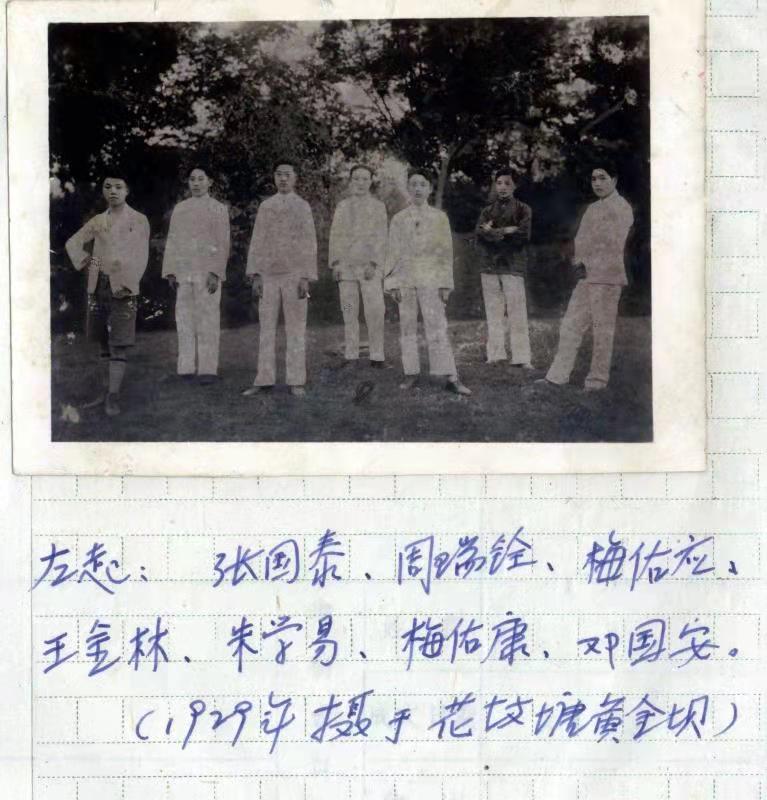 左起： 张国泰、周瑞铨、梅佑应、
王金林、朱学易、梅佑康、邓国安。
（1929年摄于花坟塘黄金坝）